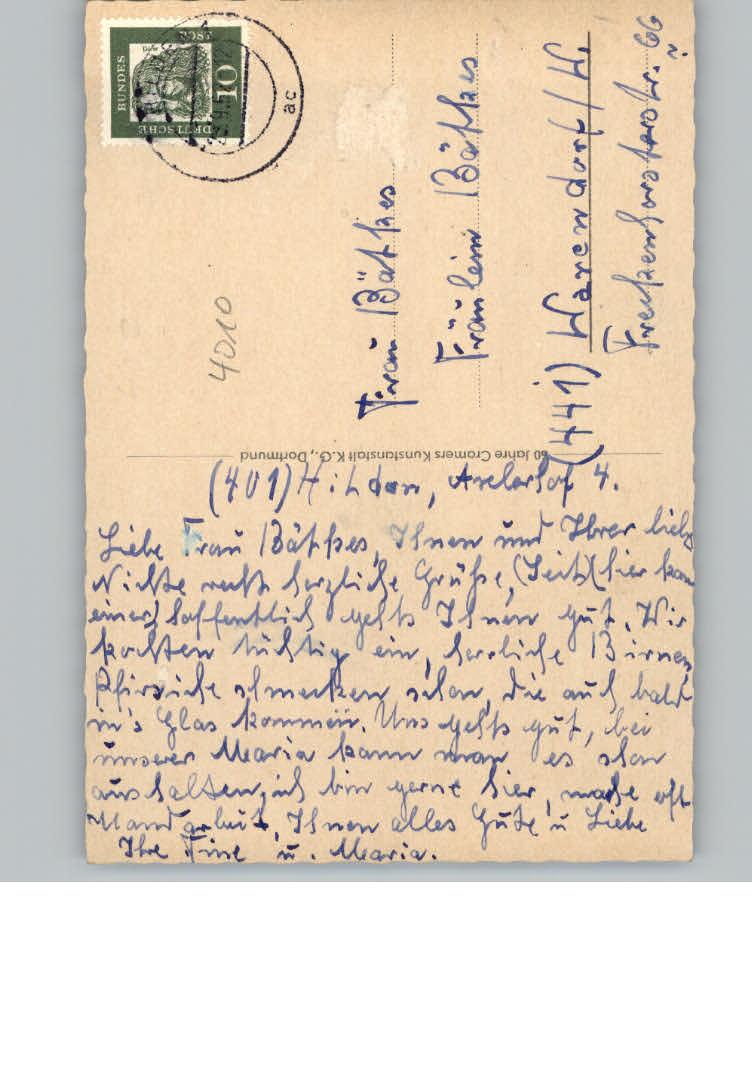 (401) Hilden, Axlerhof 4.
Liebe Frau Bäthes, Ihnen und Ihrer lieb
Nichte recht herzliche Grüße, (Seit) hier kam
einer) hoffentlich gehts Ihnen gut. Wir
kochten tüchtig ein, herrliche Birnen,
Pfirsiche schmecken schon, die auch bald
in's Glas kommen. Uns gehts gut, bei
unserer Maria kann man es schon
aushalten, ich bin gerne hier, mache oft
Handarbeit, Ihnen alles Gute u Liebe
Ihre Fine u. Maria.
Frau Bäthes
Fräulein Bäthes
(441) Warendorf/W.
Freckenhorsterstr. 66
4010
60 Jahre Cramers Kunstanstalt K.-G., Dortmund
DEUTSCHE
BUNDES
10
ac